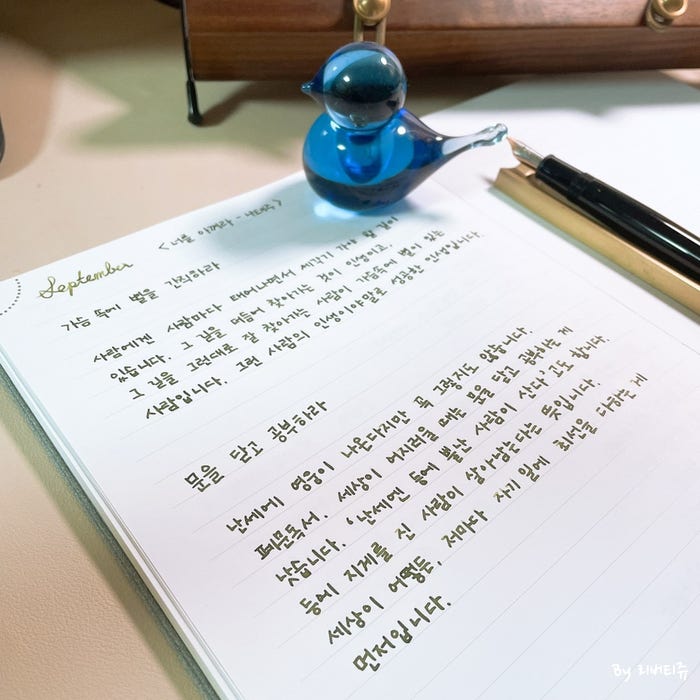 September
<너를 아끼라 - 나태주>
가슴 속에 별을 간직하라
사람에겐 사람마다 태어나면서 제각기 가야 할 길이
있습니다. 그 길을 더듬어 찾아가는 것이 인생이고,
그 길을 그런대로 잘 찾아가는 사람이 가슴속에 별이 있는
사람입니다. 그런 사람의 인생이야말로 성공한 인생입니다.
문을 닫고 공부하라
난세에 영웅이 나온다지만 꼭 그렇지도 않습니다.
폐문독서. 세상이 어지러울 때는 문을 닫고 공부하는 게
낫습니다. '난세엔 등에 뿔난 사람이 산다'고도 합니다.
등에 지게를 진 사람이 살아남는다는 뜻입니다.
세상이 어떻든, 저마다 자기 일에 최선을 다하는 게
먼저입니다.
By 리버티쥬